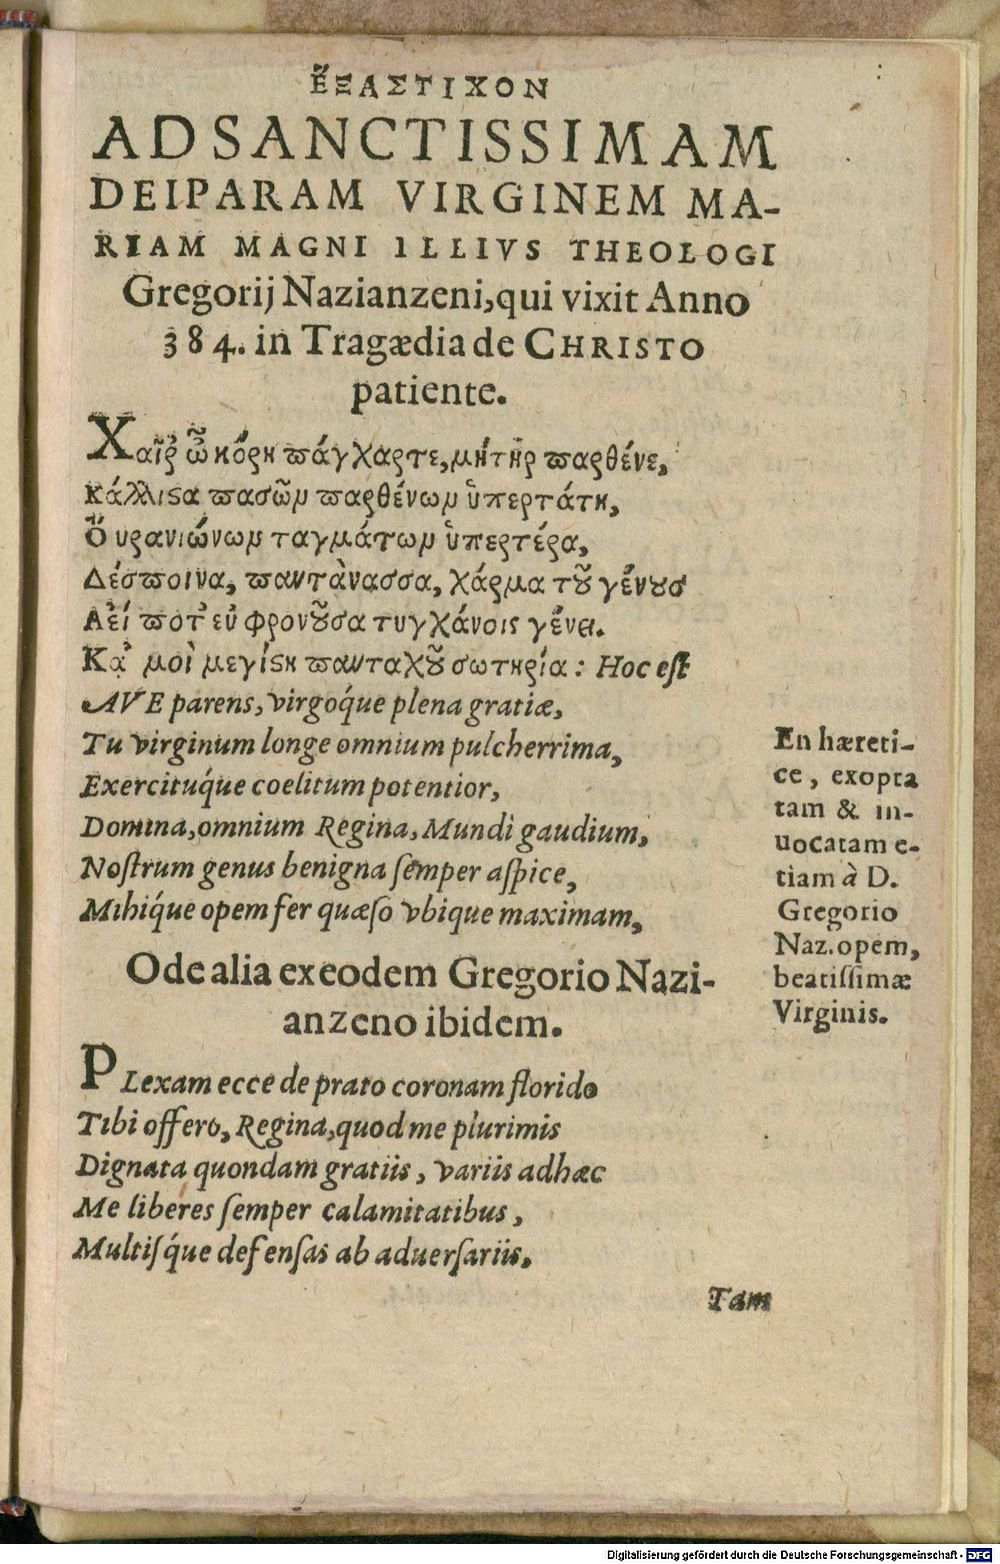 ἝΞΑΣΤΙΧΟΝ
AD SANCTISSIMAM
DEIPARAM VIRGINEM MA-
RIAM MAGNI ILLIVS THEOLOGI
Gregorij Nazianzeni, qui vixit Anno
384. in Tragædia de CHRISTO
patiente.
Χαῖρ ὦ κόρη πάγχαρτε, μήτηρ παρθένε,
Κάλλιϛα πασῶν παρθένων ὑπερτάτη,
Ὀυρανιώνων ταγμάτων ὑπερτέρα,
Δέσποινα, παντὰνασσα, χάρμα τȣ͂ γένȣς
Ἀεί ποτ' εὐ φρονȣ͂σα τυγχάνοις γένει.
Κᾀ μοὶ μεγίϛη πανταχȣ͂ σωτηρία: Hoc eſt
AVE parens, virgoq́ue plena gratiæ,
Tu virginum longe omnium pulcherrima,
Exercituq́ue coelitum potentior,
Domina, omnium Regina, Mundi gaudium,
Noſtrum genus benigna ſemper aſpice,
Mihiq́ue opem fer quæſo vbique maximam,
En hæreti-
ce, exopta
tam & in-
uocatam e-
tiam à D.
Gregorio
Naz. opem,
beatiſſimæ
Virginis.
Ode alia ex eodem Gregorio Nazi-
anzeno ibidem.
PLexam ecce de prato coronam florido
Tibi offero, Regina, quod me plurimis
Dignata quondam gratiis, variis adhæc
Me liberes ſemper calamitatibus,
Multiſq́ue defenſas ab aduerſariis.
Tam
Digitalisierung gefördert durch die Deutsche Forschungsgemeinschaft - DFG